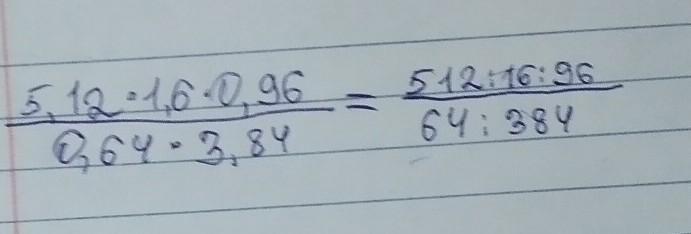 5,12·1,6·0,96 / 0,64·3,84 = 512:16:96 / 64:384